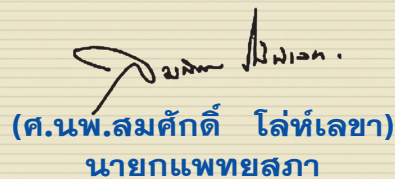 (ศ.นพ.สมศักดิ์ โล่ห์เลขา)
นายกแพทยสภา